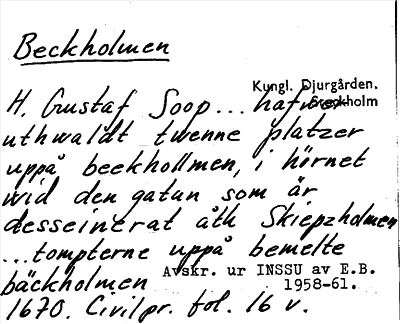 Beckholmen
Kungl. Djurgården.
Stockholm
H. Gustaf Soop... hafver
uthwaldt twenne platzer
uppå beekhollmen, i hörnet
wid den gatan som är
desseinerat åth Skiepzholmen
...tompterne uppå bemelte
bäckholmen
Avskr. ur INSSU av E.B.
1958-61.
1670. Civilpr. fol. 16 v.